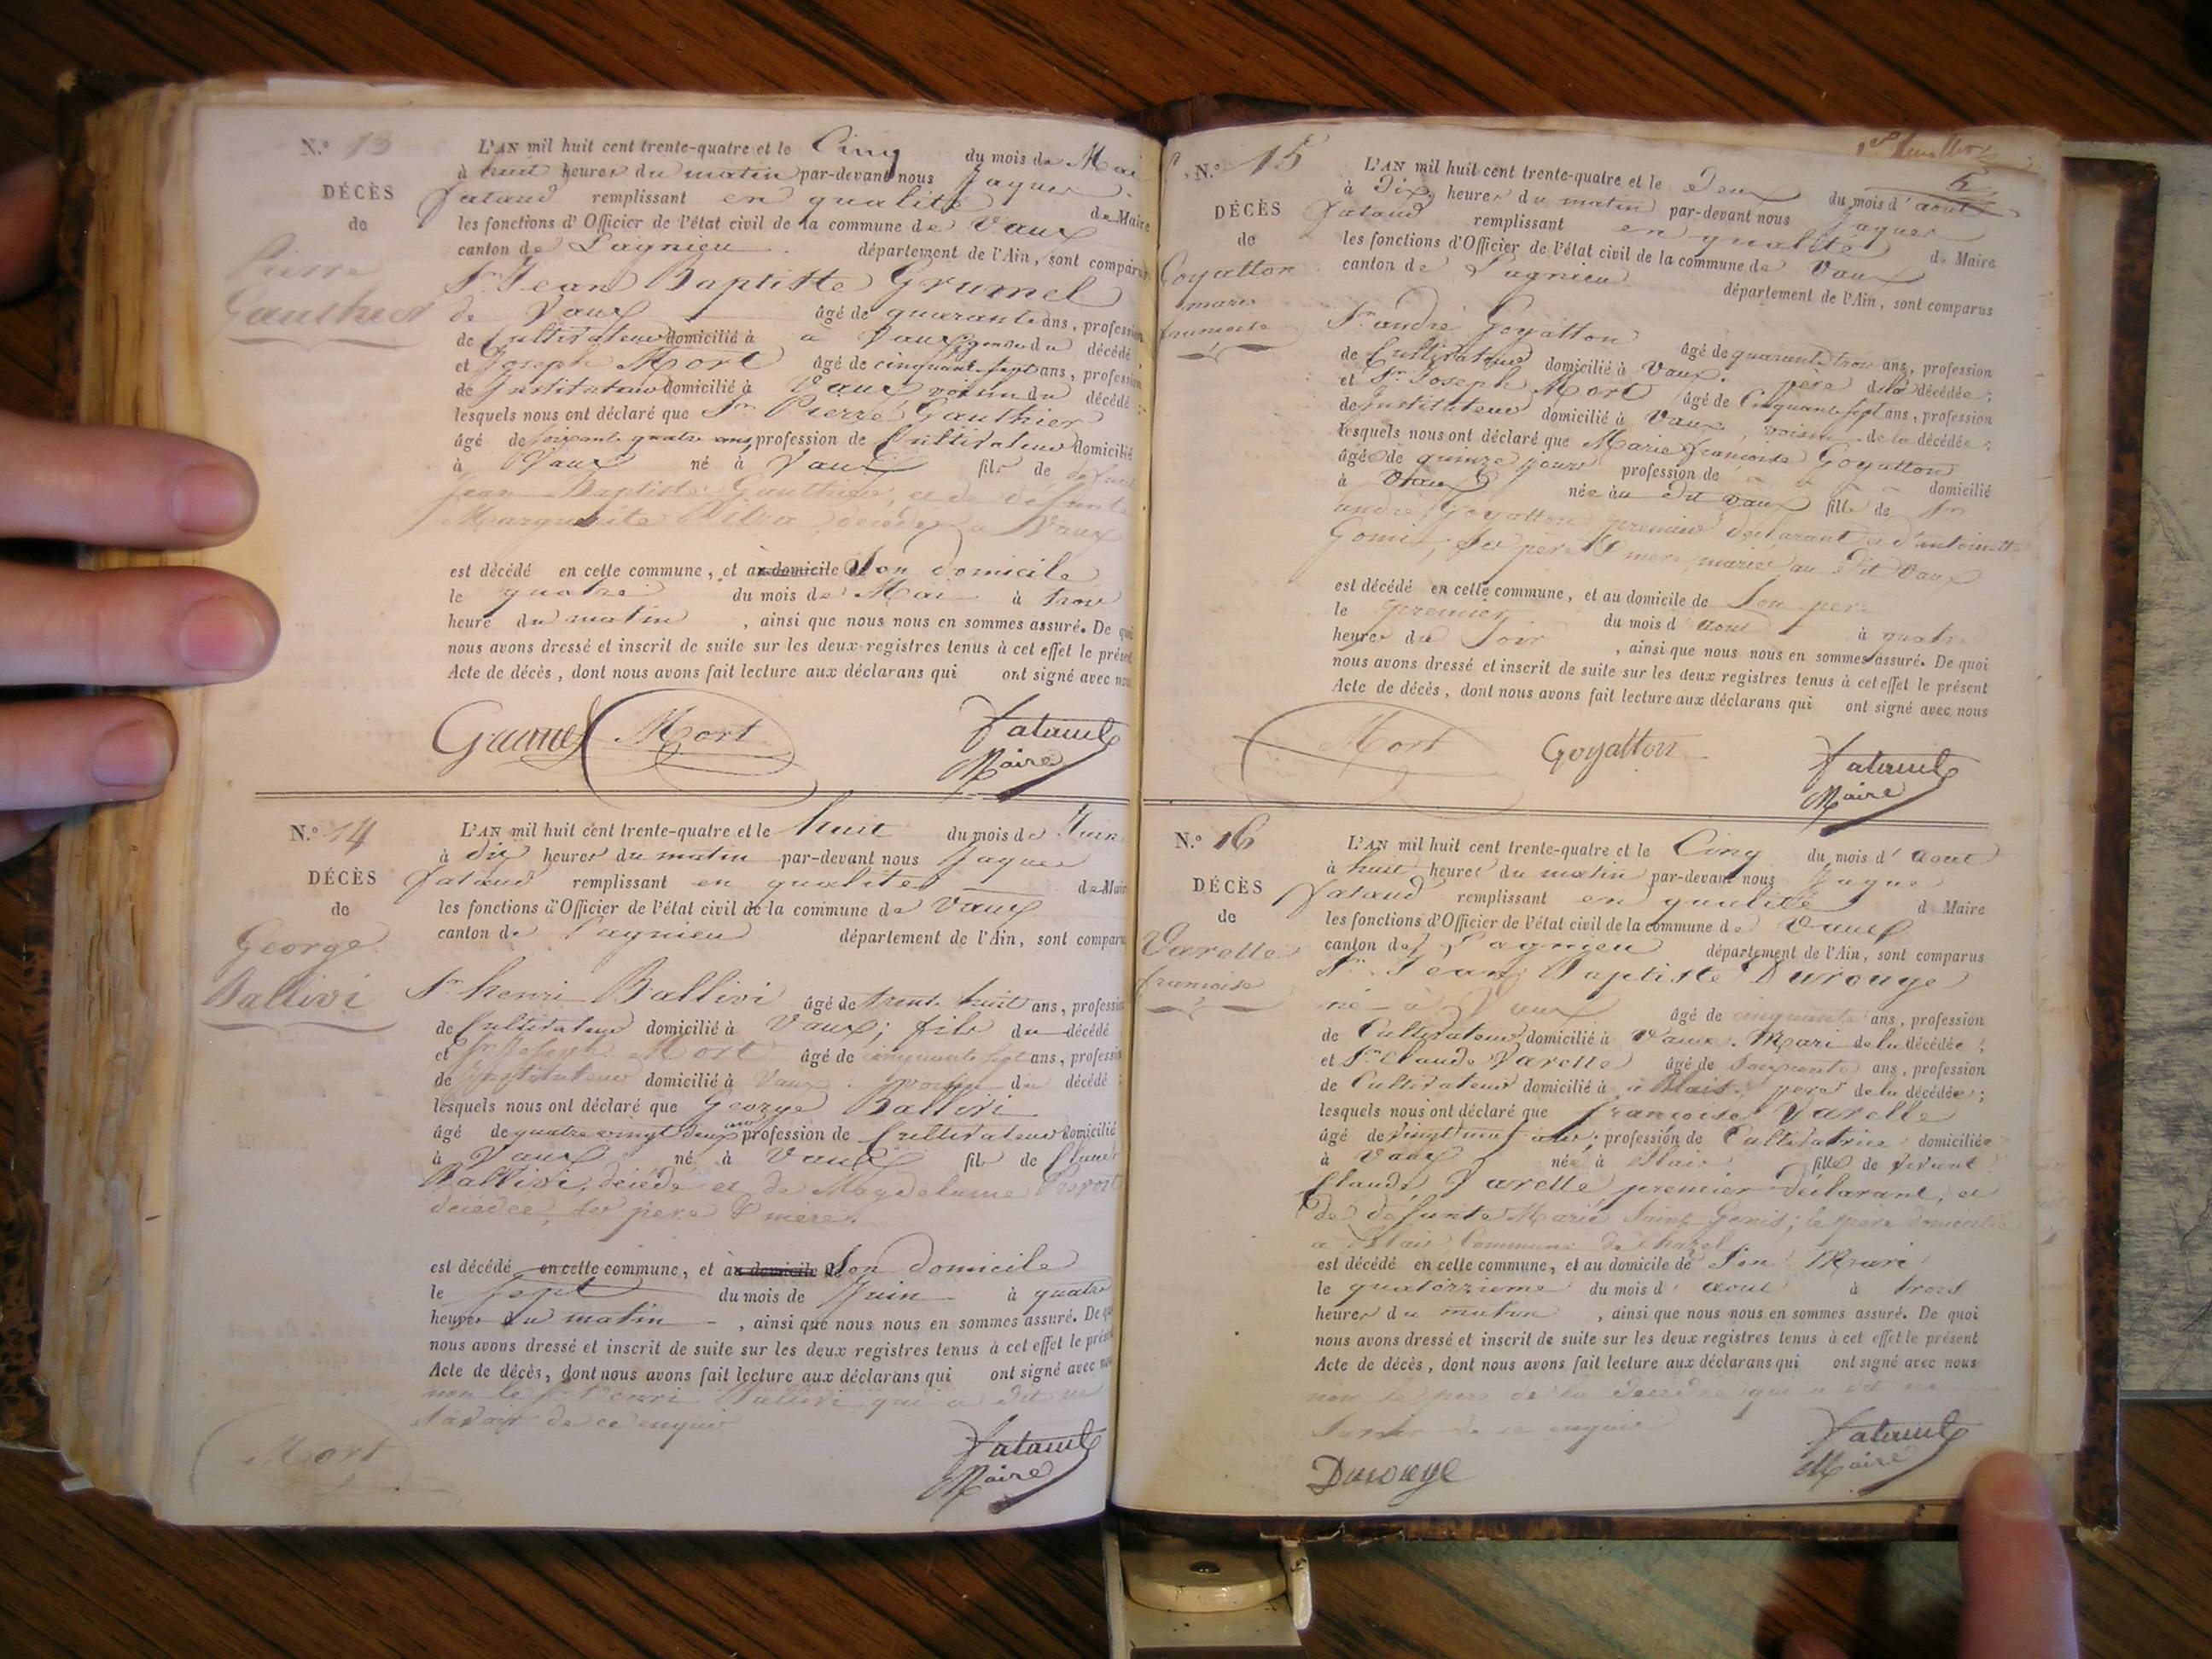 N.º 13
DÉCÈS
de
Pierre
Gauthier
L'AN mil huit cent trente-quatre et le Cinq du mois de Mai
à huit heures du matin par-devant nous Jaques
Jataud remplissant en qualité de Maire
les fonctions d'Officier de l'état civil de la commune de Vaux
canton de Lagnieu département de l'Ain, sont comparus
Sr. Jean Baptiste Grumel
de Vaux âgé de quarante ans, profession
de Cultivateur domicilié à à Vaux, gendre du décédé
et Joseph Mort âgé de cinquante sept ans, profession
de Instituteur domicilié à Vaux voisin du décédé
lesquels nous ont déclaré que Sr. Pierre Gauthier
âgé de soixante quatre ans, profession de Cultivateur domicilié
à Vaux né à Vaux fils de défunt
Jean Baptiste Gauthier, et de défunte
Marguerite décédés à Vaux
est décédé en cette commune, et à au domicile de Son domicile
le quatre du mois de Mai à trois
heure du matin, ainsi que nous nous en sommes assuré. De quoi
nous avons dressé et inscrit de suite sur les deux registres tenus à cet effet le présent
Acte de décès, dont nous avons fait lecture aux déclarans qui ont signé avec nous
Grumel Mort Jataud
Maire
N.º 14
DÉCÈS
de
George
Ballivi
L'AN mil huit cent trente-quatre et le huit du mois de Juin
à dix heures du matin par-devant nous Jaques
Jataud remplissant en qualité de Maire
les fonctions d'Officier de l'état civil de la commune de Vaux
canton de Lagnieu département de l'Ain, sont comparus
Sr. henri Ballivi âgé de trente huit ans, profession
de Cultivateur domicilié à Vaux; fils du décédé
et Sr. Joseph Mort âgé de cinquante sept ans, profession
de Instituteur domicilié à Vaux. voisin du décédé
lesquels nous ont déclaré que George Ballivi
âgé de quatre vingt deux ans profession de Cultivateur domicilié
à Vaux né à Vaux fils de Claude
Ballivi, décédé et de Magdelaine
décédée, ses père & mère.
est décédé en cette commune, et à au domicile de Son domicile
le sept du mois de Juin à quatre
heures du matin, ainsi que nous nous en sommes assuré. De quoi
nous avons dressé et inscrit de suite sur les deux registres tenus à cet effet le présent
Acte de décès, dont nous avons fait lecture aux déclarans qui ont signé avec nous
non le Sr. henri Ballivi qui a dit ne
savoir de ce enquis
Mort Jataud
Maire
5
N.º 15
DÉCÈS
de
Goyatton
marie
francoise
L'AN mil huit cent trente-quatre et le Deux du mois d'aout
à Dix heures du matin par-devant nous Jaques
Jataud remplissant en qualité de Maire
les fonctions d'Officier de l'état civil de la commune de Vaux
canton de Lagnieu département de l'Ain, sont comparus
Sr. andré Goyatton âgé de quarante trois ans, profession
de Cultivateur domicilié à Vaux. père de la décédée;
et Sr. Joseph Mort âgé de Cinquante sept ans, profession
de Instituteur domicilié à Vaux, voisin de la décédée;
lesquels nous ont déclaré que Marie francoise Goyatton
âgée de quinze jours profession de domicilié
à Vaux née au dit vaux fille de Sr.
andré Goyatton premier déclarant et d'antoinette
Gomi, ses père & mère, mariés au dit Vaux
est décédé en cette commune, et au domicile de Son père
le premier du mois d'aout à quatre
heures du Soir, ainsi que nous nous en sommes assuré. De quoi
nous avons dressé et inscrit de suite sur les deux registres tenus à cet effet le présent
Acte de décès, dont nous avons fait lecture aux déclarans qui ont signé avec nous
Mort Goyatton Jataud
Maire
N.º 16
DÉCÈS
de
Varelle
francoise
L'AN mil huit cent trente-quatre et le Cinq du mois d'aout
à huit heures du matin par-devant nous Jaques
Jataud remplissant en qualité de Maire
les fonctions d'Officier de l'état civil de la commune de Vaux
canton de Lagnieu département de l'Ain, sont comparus
Sr. Jean Baptiste Durouge
né à Vaux âgé de cinquante ans, profession
de Cultivateur domicilié à Vaux. Mari de la décédée;
et Sr. Claude Varelle âgé de soixante ans, profession
de Cultivateur domicilié à à Blais. père de la décédée;
lesquels nous ont déclaré que francoise Varelle
âgé de vingt neuf ans; profession de Cultivatrice domiciliée
à Vaux née à Blais fille de vivant
Claude Varelle premier déclarant, et
de défunte Marie Saint Genis; le père domicilié
à Blais Commune de Chazel
est décédé en cette commune, et au domicile de Son Mari
le quatorzieme du mois d'aout à trois
heures du matin, ainsi que nous nous en sommes assuré. De quoi
nous avons dressé et inscrit de suite sur les deux registres tenus à cet effet le présent
Acte de décès, dont nous avons fait lecture aux déclarans qui ont signé avec nous
non le père de la décédée qui a dit ne
savoir de ce enquis
Durouge Jataud
Maire